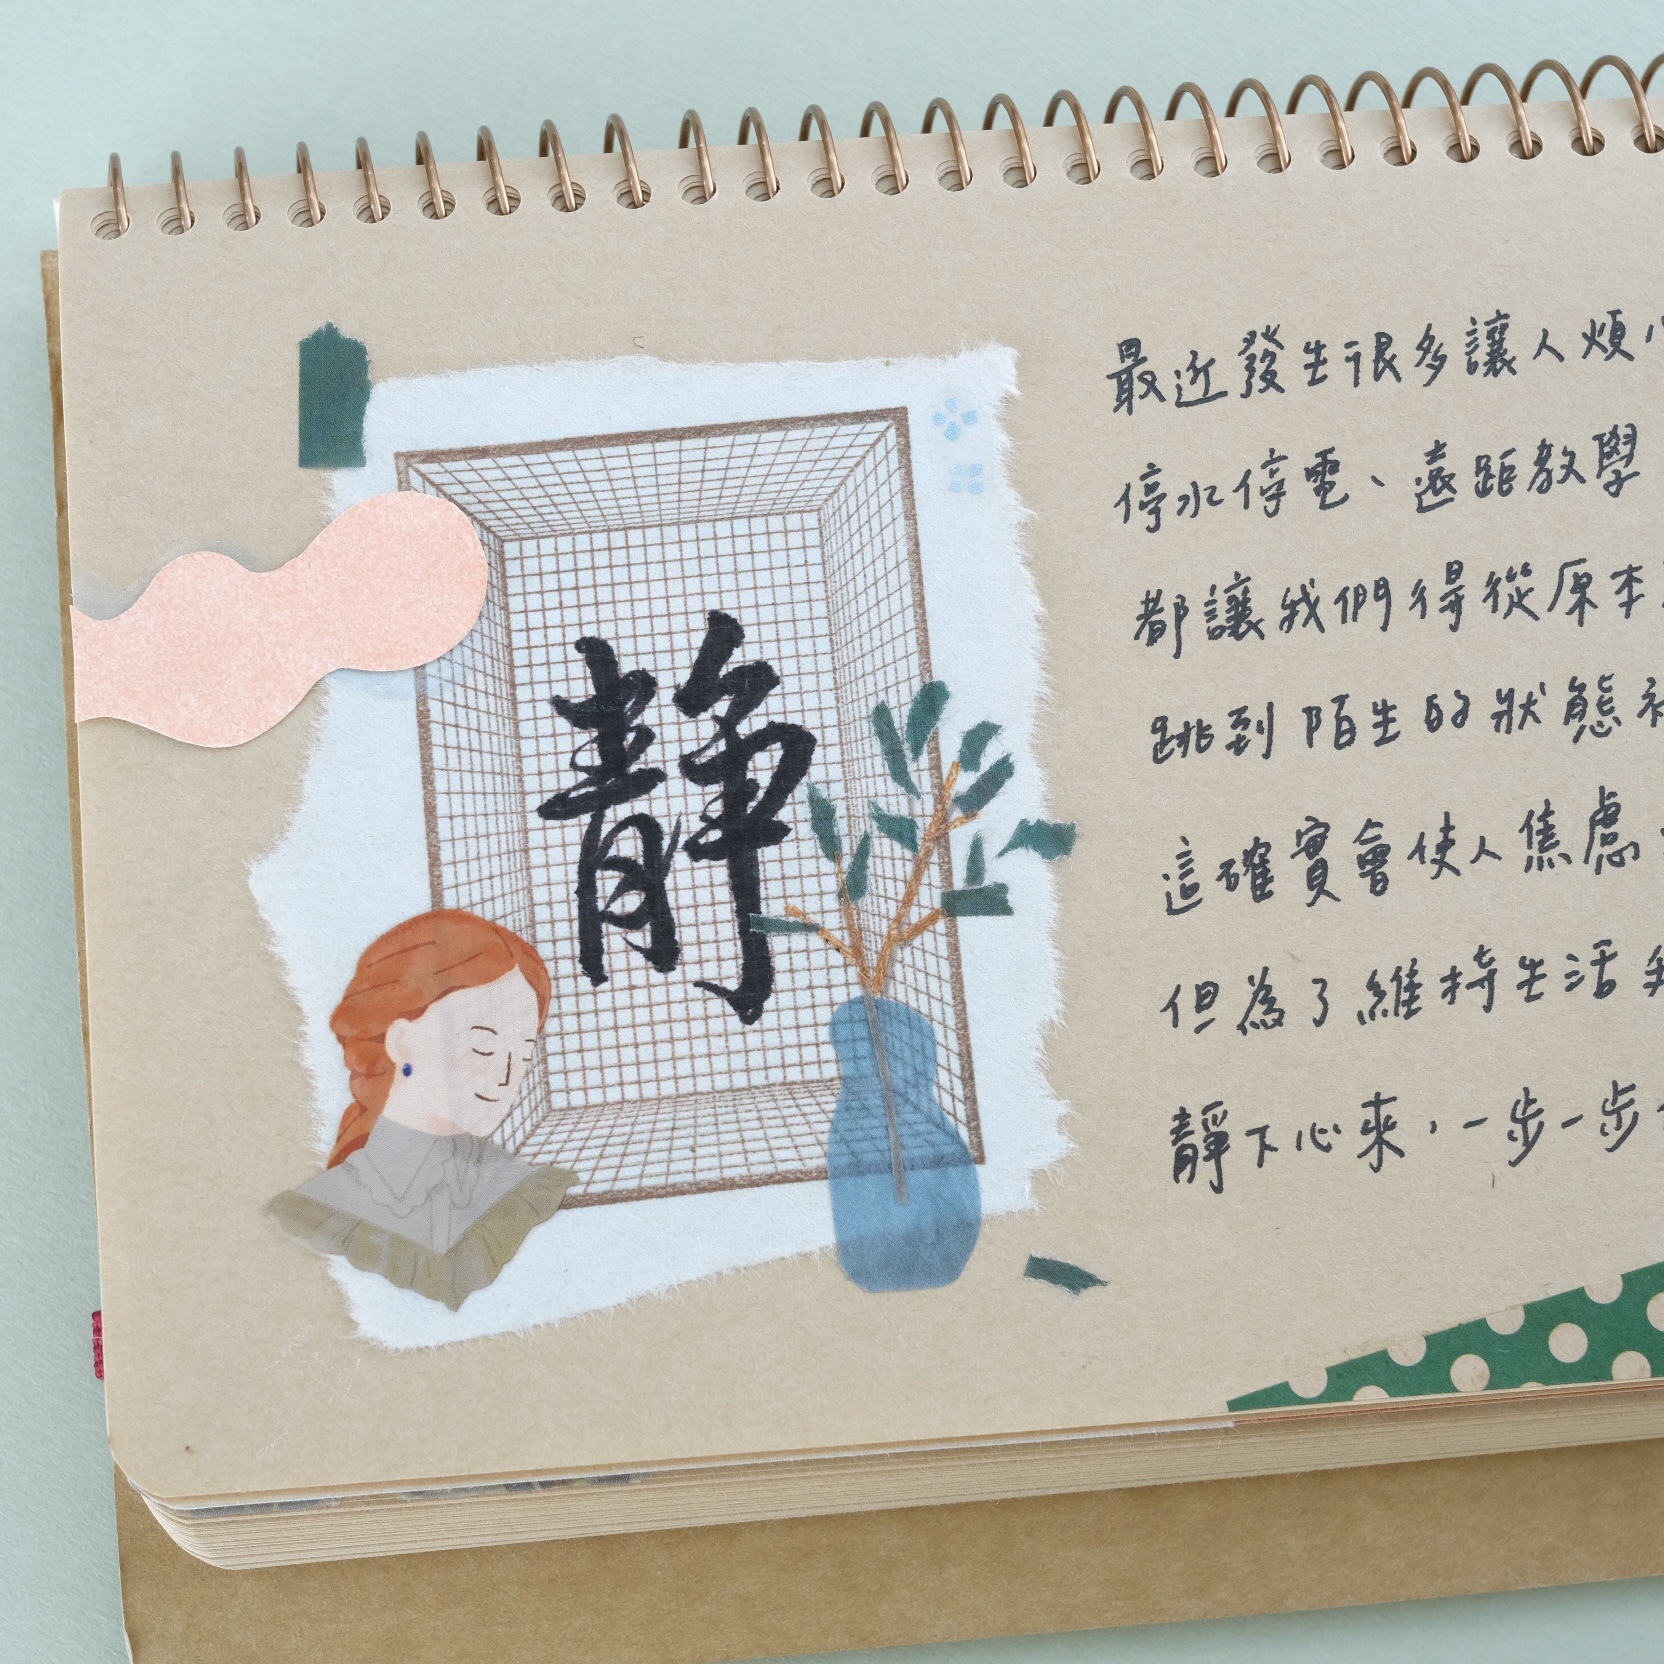 靜
最近發生很多讓人煩
停水停電、遠距教學
都讓我們得從原本
跳到陌生的狀態
這確實會使人焦慮
但為了維持生活
靜下心來，一步一步